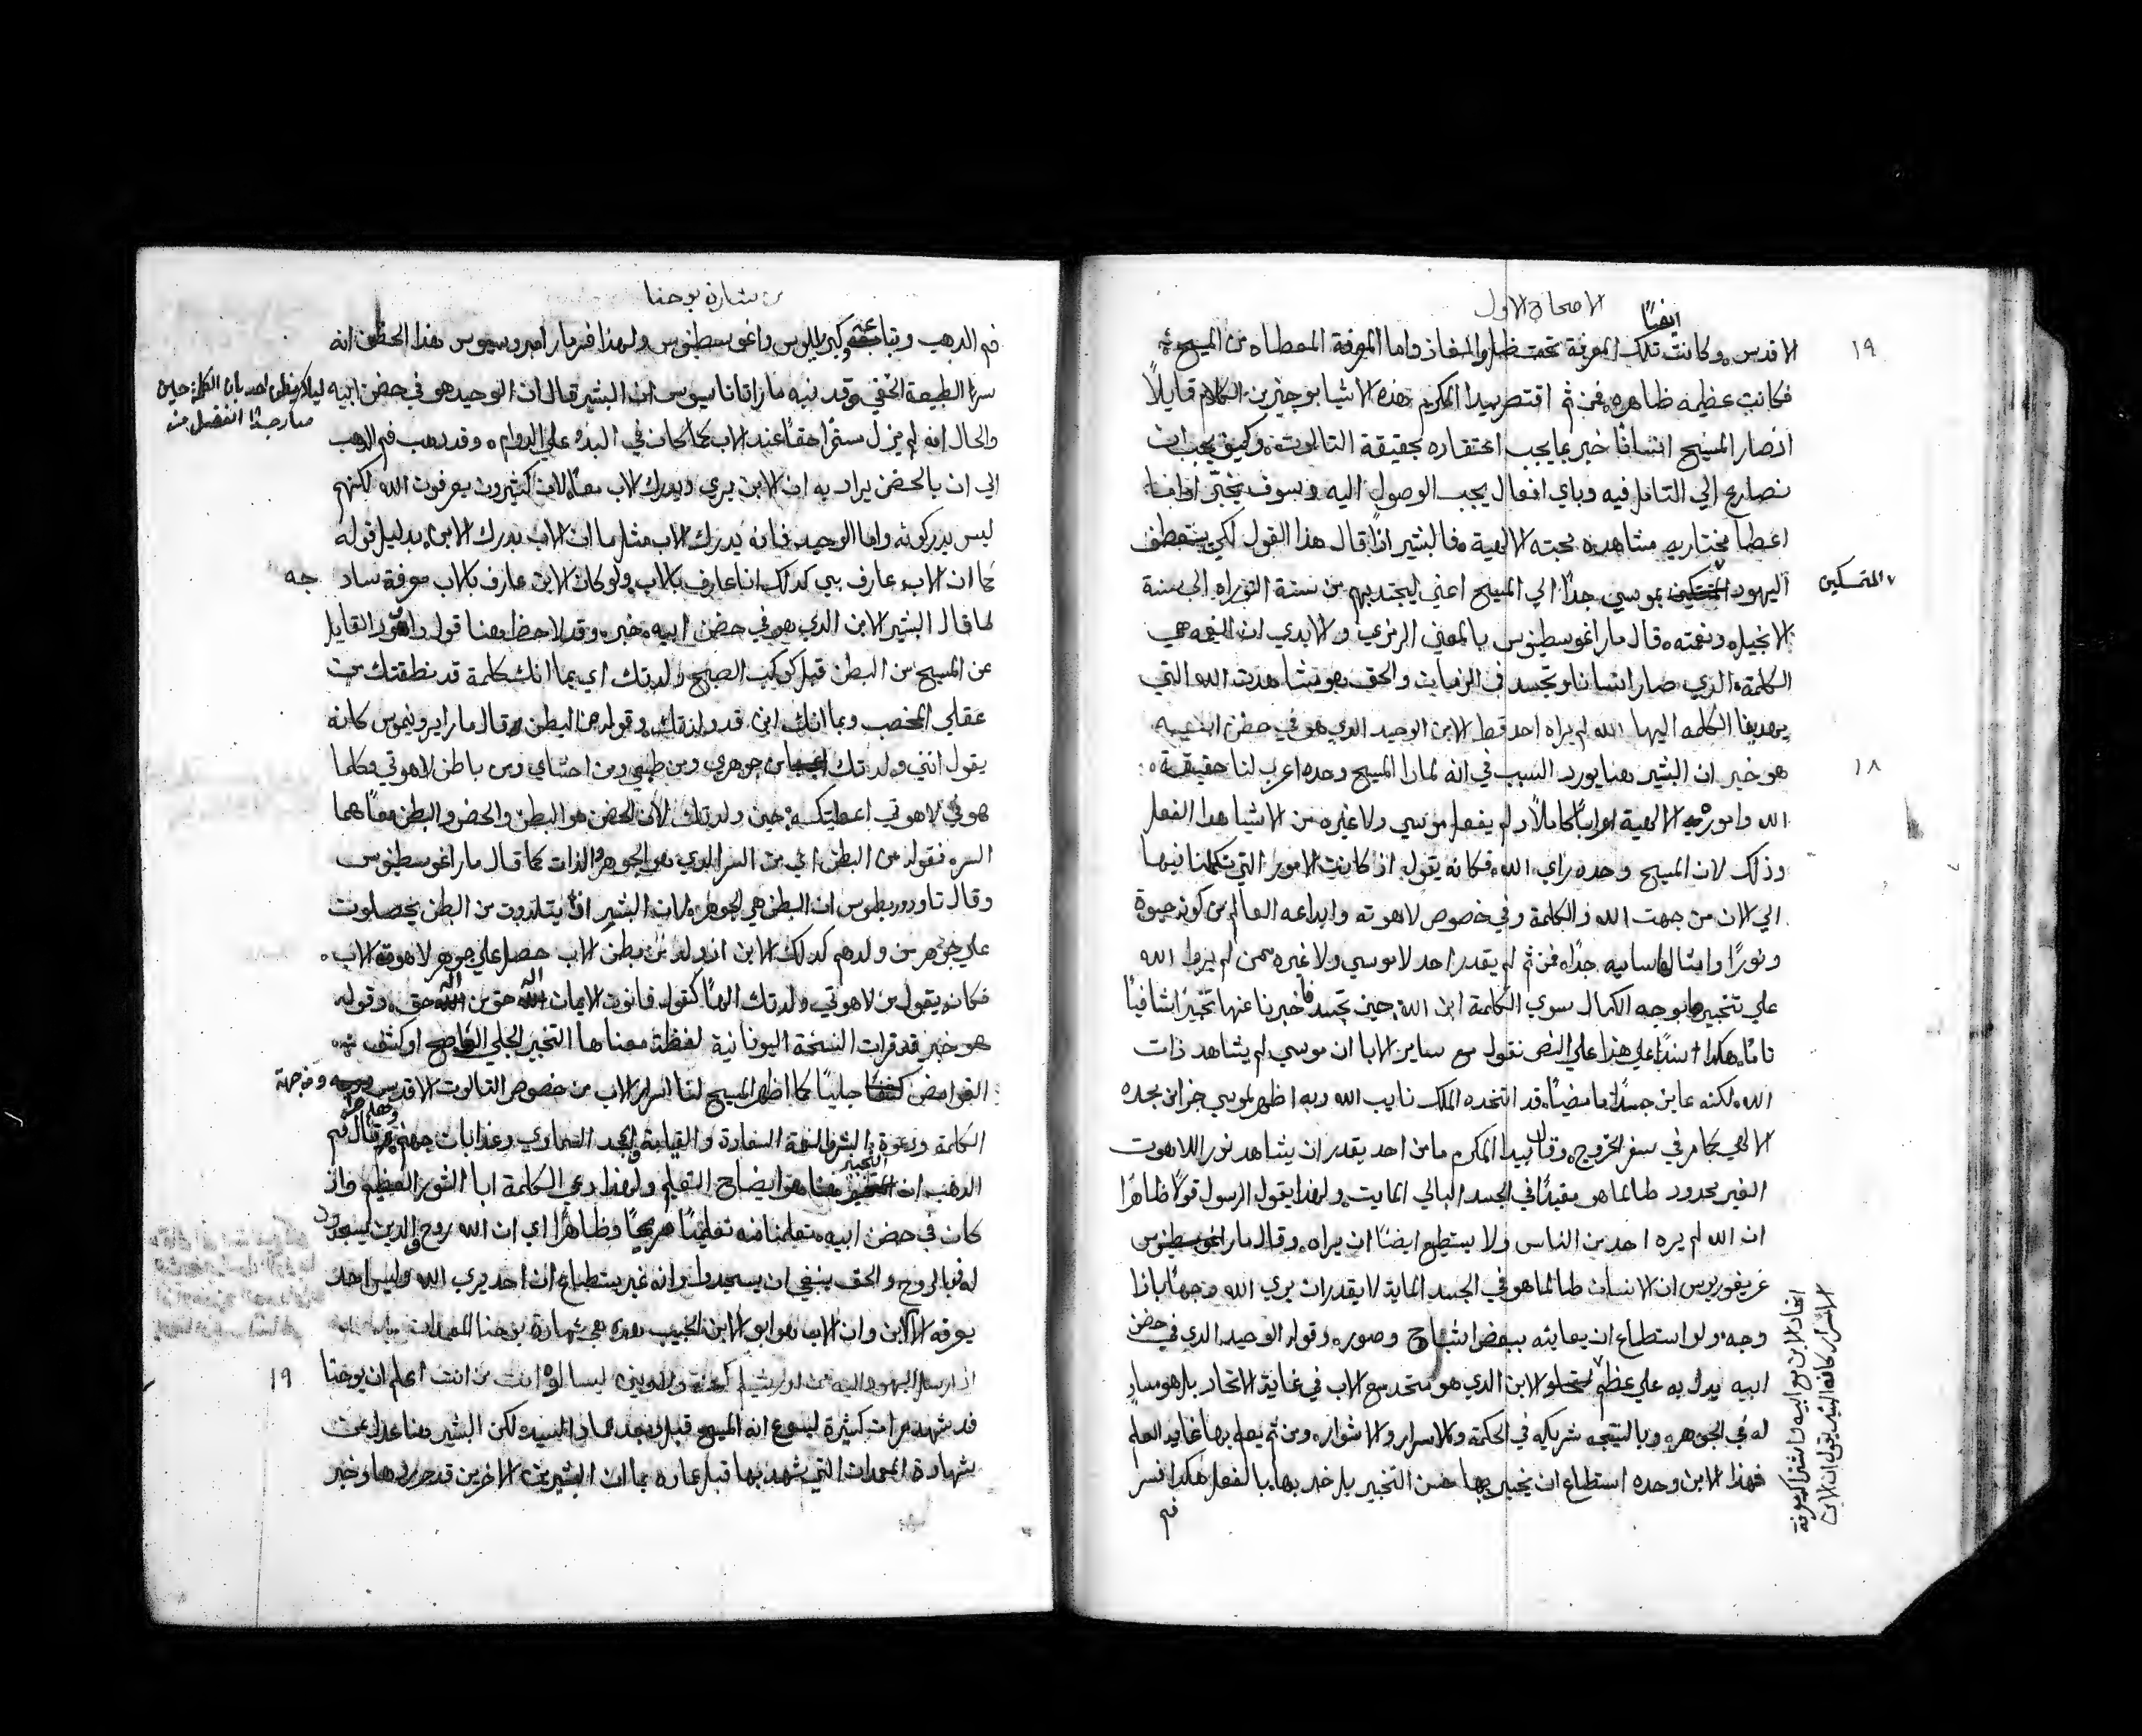 الاصحاح الاول
ايضًا
١٩
الاقدس. وكانت تلك المعرفة تحت ظل والغاز واما المعرفة المعطاه من المسيح
فكانت عظيمه ظاهره. فمن ثم اقتصر بيدا المكرم هذه الاشيا بوجيز من الكلام قايلاً
اذ صار المسيح انسانًا خبر بما يجب اعتقاده بحقيقة التالوت. وكيف يجب ان
نصارع الي التامل فيه وباي افعال يجب الوصول اليه وسوف يخبر اذا ما
اعطا مختاريه مشاهدة محبته الالهية. فالبشير اذًا قال هذا القول لكي ينعطف
اليهود بموسي جدًا الي المسيح اعني ليجتدبهم من سنة التوراه الي سنة
المتمسكين
الانجيل ونعمته. قال مار اغوسطينوس بالمعني الرمزي والابدي ان النعمه هي
الكلمة الذي صار انسانا وتجسد في الزمان والحق هو مشاهدة الله التي
يهدينا الكلمه اليها الله لم يراه احد قط الابن الوحيد الدي هو في حضن ابيه
١٨
هو خبر ان البشير هنا يورد السبب في انه لمادا المسيح وحده اعرب لنا حقيقة
الله واموره الالهية اعرابًا كاملاً ولم يفعل موسي ولا غيره من الانبيا هدا الفعل
وذلك لان المسيح وحده راي الله. فكانه يقول اذ كانت الامور التي تكلمنا فيها
الي الان من جهت الله والكلمة وفي خصوص لاهوته وابداعه العالم من كونه حيوة
ونورًا وامثالها ساميه جدًا. فمن ثم لم يقدر احد لا موسي ولا غيره ممن لم يروا الله
علي تخبيرها بوجه الكمال سوي الكلمة ابن الله حين تجسد فاخبرنا عنها تخبيرًا شافيًا
تامًا. هكدا سندًا علي هذا علي النص نقول مع ساير الابا ان موسي لم يشاهد ذات
الله لكنه عاين جسدًا ما مضيئًا. قد اتخده الملك نايب الله وبه اظهر لموسي جزا من مجده
الالهي كما مر في سفر الخروج. وقال بيدا المكرم ما من احد يقدر ان يشاهد نور اللاهوت
الغير محدود طالما هو مقيدًا في الجسد البالي المايت. ولهذا يقول الرسول قولاً ظاهرًا
ان الله لم يره احد من الناس ولا يستطيع ايضًا ان يراه. وقال مار اغوسطينوس
غريغوريوس ان الانسان طالما هو في الجسد المايت لا يقدر ان يري الله وجهًا بازا
وجه ولو استطاع ان يعاينه ببعض اشباح وصور. وقوله الوحيد الدي في حضن
ابيه يدل به علي عظم الابن الدي هو متحد مع الاب في غاية الاتحاد بل هو مساو
له في الجوهر. وبالنتيجه شريكه في الحكمة والاسرار والاشوار. ومن ثم يعلم بها غاية العلم
فهذا الابن وحده استطاع ان يخبر بها حسن التخبير بل خبر بها بالفعل هكدا فسر
فم
اتحاد الابن مع ابيه واشتراكه بمعرفة
الاسرار كانه البشير يقول ان الابن
من بشارة يوحنا
فم الدهب وتباعه وكيرللوس واغوسطينوس ولهذا فسر مار امبروسيوس هذا الحضن انه
سر الطبيعة الخفي وقد نبه مار اتاناسيوس ان البشير قال ان الوحيد هو في حضن ابيه
ليلا يظن احد بان الكلمة حين
صار جسدًا انفصل منه
والحال انه لم يزل مستمرًا حقًا عند الاب كما كان في البدء علي الدوام. وقد دهب فم الدهب
الي ان بالحضن يراد به ان الابن يري ويدرك الاب معًا. لان كثيرون يعرفون الله لكنهم
ليس يدركونه واما الوحيد فانه يدرك الاب مثل ما ان الاب يدرك الابن. بدليل قوله
كما ان الاب عارف بي كدلك انا عارف بالاب ولو كان الابن عارف بالاب معرفة ساد جه
لما قال البشير الابن الدي هو في حضن ابيه خبر. وقد لاحظ هنا قول داوود القايل
عن المسيح من البطن قبل كوكب الصبح ولدتك اي بما انك كلمة قد نطقتك من
عقلي المخصب وبما انك ابن قد ولدتك. وقوله من البطن قال مار ايرونيموس كانه
يقول انني ولدتك من جوهري ومن طبيعتي ومن احشاي ومن باطن لاهوتي وكلما
هو في لاهوتي اعطيتكه حين ولدتك لان الحضن هو البطن والحضن والبطن معًا هما
السر. فقوله من البطن اي من السر الدي هو الجوهر والذات كما قال مار اغوسطينوس
وقال تاودوريطوس ان البطن هي الجوهر. لان البشر اذ يتلدون من البطن يحصلون
علي جوهر من ولدهم كدلك الابن اذ ولد من بطن الاب حصل علي جوهر لاهوت الاب.
فكانه يقول من لاهوتي ولدتك الهًا كقول قانون الايمان اله حق من اله حق. وقوله
هو خبر قد قرات النسخة اليونانية لفظة معناها التخبير الجلي الواضح او كشف
الغوامض جليًا كما اظهر المسيح لنا اسرار الاب من خصوص التالوت الاقدس ومن جهة
الكلمة ودعوة البشر لنعمة السعادة والقيامة والمجد السماوي وعذابات جهنم وهلم جرا. قال فم
الدهب ان التخبير هنا هو ايضاح التعليم ولهذا دعي الكلمة ابا الشور العظيم واذ
كان في حضن ابيه. تعلمنا منه تعليمًا صريحًا وظاهرًا اي ان الله روح والدين يسجدون
له فبالروح والحق ينبغي ان يسجدوا وانه غير مستطاع ان احد يري الله وليس احد
يعرفه الا الابن وان الاب هو ابو الابن الحبيب هذه هي شهادة يوحنا المعمدان
١٩
اذ ارسل اليهود اليه من اورشليم كهنة ولاويين ليسالوه انت من انت اعلم ان يوحنا
قد شهد مرات كثيرة ليسوع انه المسيح قبل وبعد عماد السيد لكن البشير هنا عدا عن
شهادة المعمدان التي شهد بها قبل عماده بما ان البشيرين الاخرين قد حررها وخبر
بها